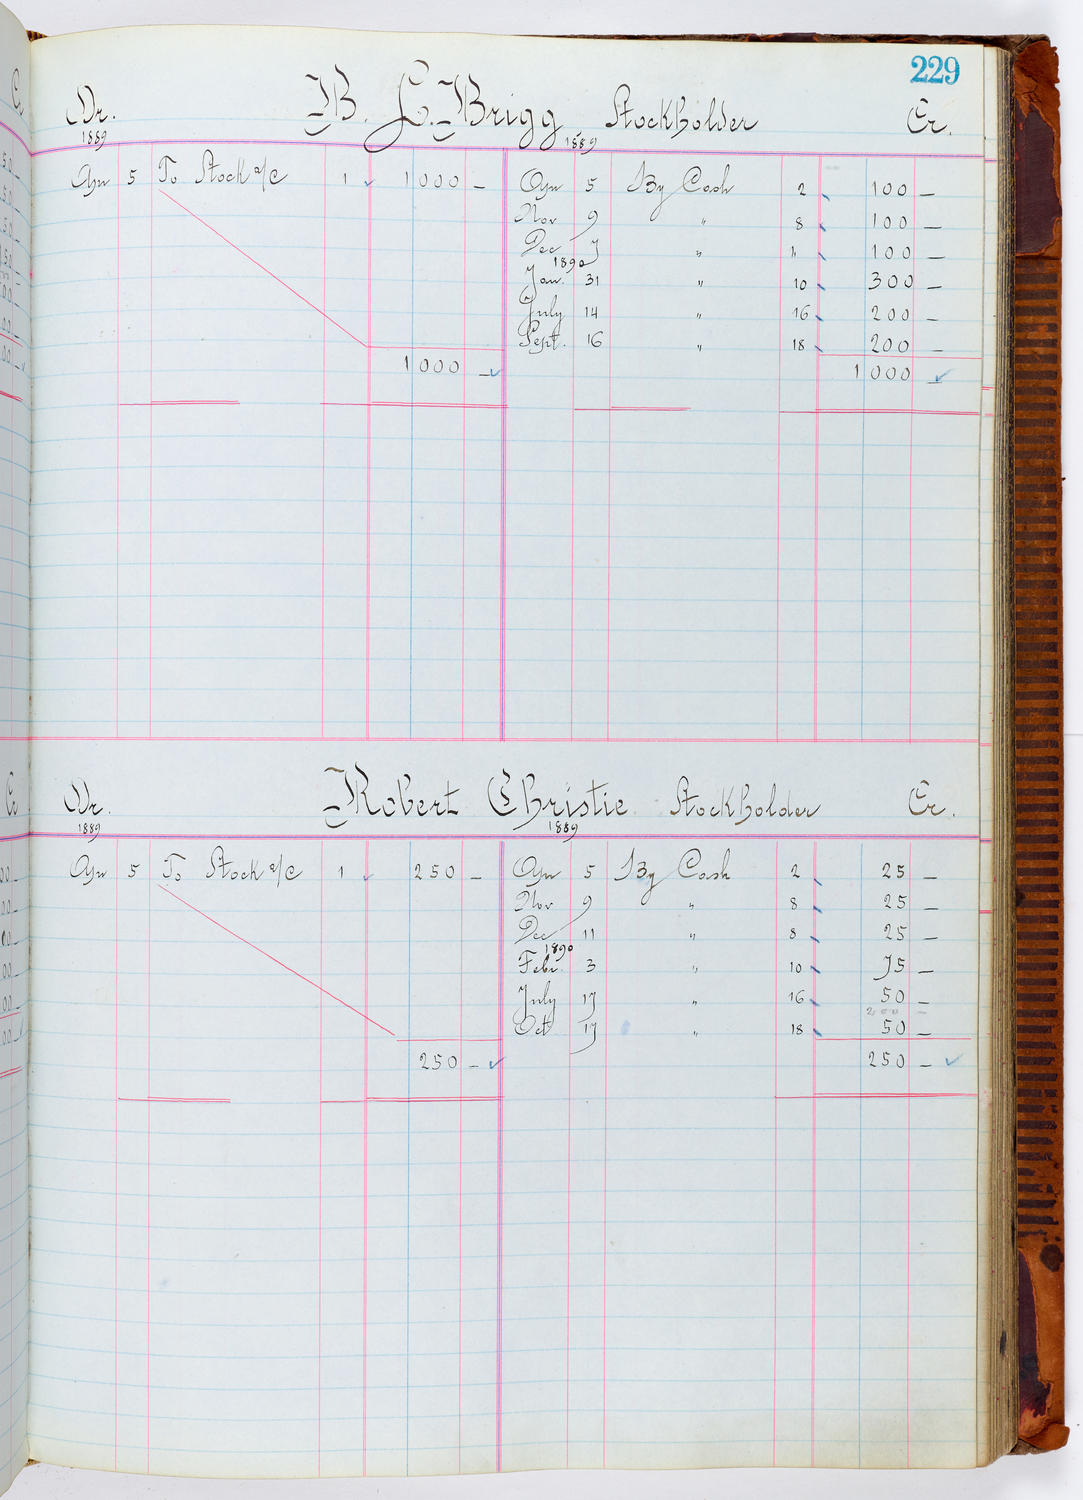 229
Dr. B. L. Brigg Stockholder Cr.
1889 1889
Apr 5 To Stock a/c 1 1000 — Apr 5 By Cash 2 100 —
Nov 9 " 8 100 —
Dec 7 " " 100 —
1890
Jan. 31 " 10 300 —
July 14 " 16 200 —
Sept. 16 " 18 200 —
1000 — 1000 —
Dr. Robert Christie Stockholder Cr.
1889 1889
Apr 5 To Stock a/c 1 250 — Apr 5 By Cash 2 25 —
Nov 9 " 8 25 —
Dec 11 " 8 25 —
1890
Febr. 3 " 10 75 —
July 17 " 16 50 —
200 —
Oct 17 " 18 50 —
250 — 250 —